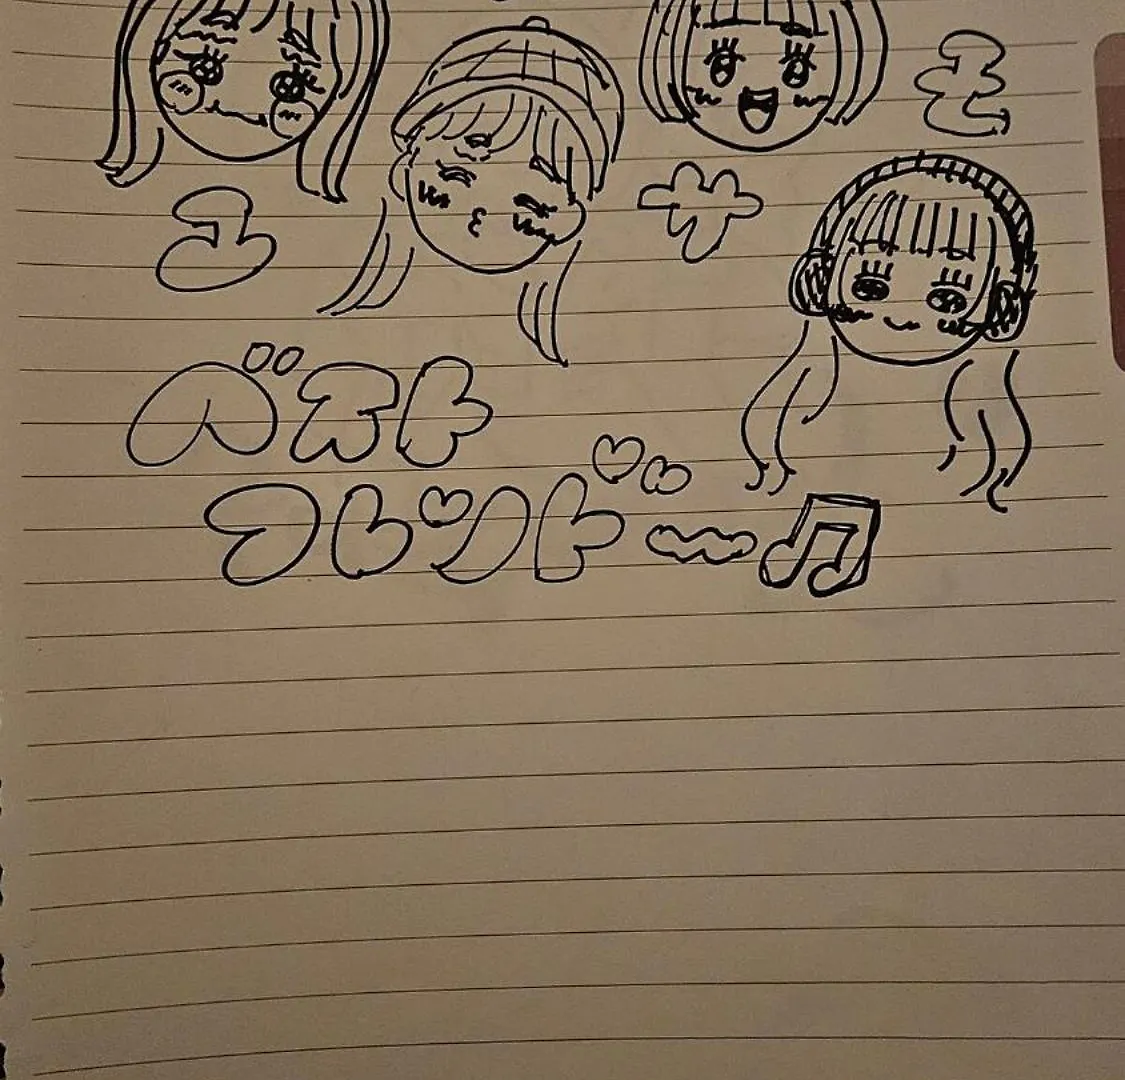 ユ サ
ベスト
フレンド〜♫